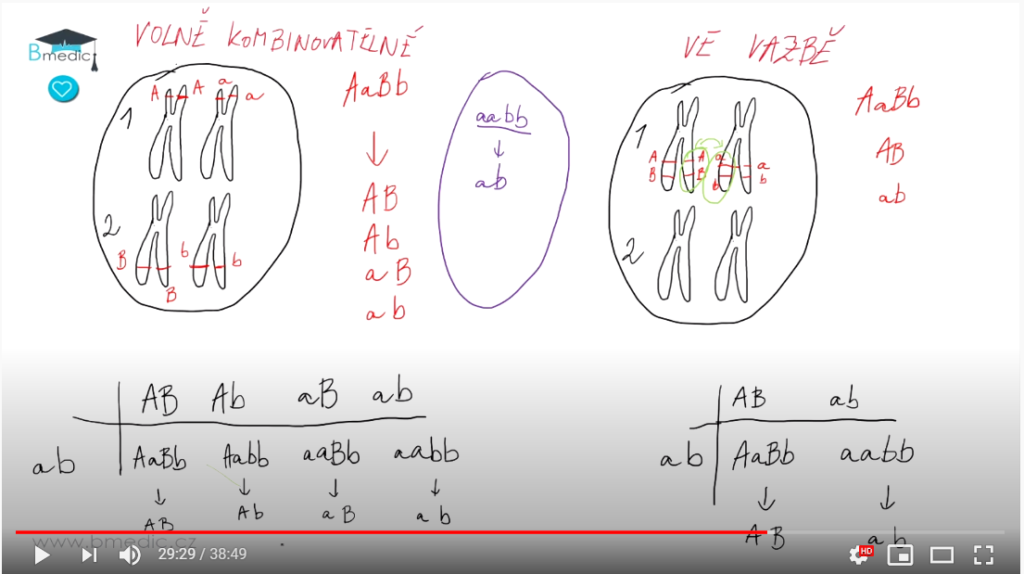 VOLNĚ KOMBINOVATELNÉ
VE VAZBĚ
Bmedic
A A a a
1
2
B B b b
AaBb
AB
Ab
aB
ab
aabb
ab
1
A A a a
B B b b
2
AaBb
AB
ab
AB Ab aB ab
ab AaBb Aabb aaBb aabb
AB Ab aB ab
AB ab
ab AaBb aabb
AB ab
www.bmedic.cz
29:29 / 38:49
HD